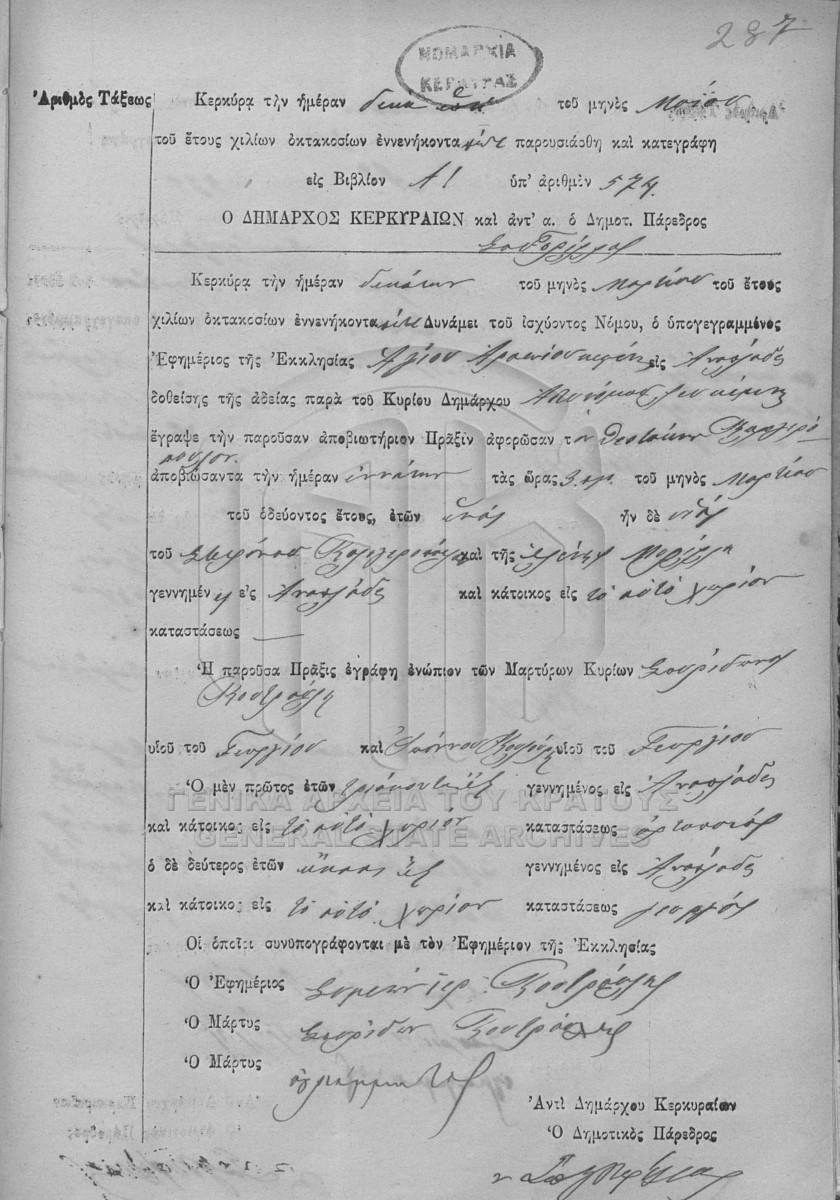 287
ΝΟΜΑΡΧΙΑ
ΚΕΡΚΥΡΑΣ
Ἀριθμὸς Τάξεως
Κερκύρᾳ τὴν ἡμέραν δεκάτην τοῦ μηνὸς Μαΐου
τοῦ ἔτους χιλίων ὀκτακοσίων ἐννενήκοντα παρουσιάσθη καὶ κατεγράφη
εἰς Βιβλίον Α! ὑπ' ἀριθμὸν 574.
Ο ΔΗΜΑΡΧΟΣ ΚΕΡΚΥΡΑΙΩΝ καὶ ἀντ' α. ὁ Δημοτ. Πάρεδρος
Κερκύρᾳ τὴν ἡμέραν δεκάτην τοῦ μηνὸς Μαρτίου τοῦ ἔτους
χιλίων ὀκτακοσίων ἐννενήκοντα Δυνάμει τοῦ ἰσχύοντος Νόμου, ὁ ὑπογεγραμμένος
Ἐφημέριος τῆς Ἐκκλησίας Ἁγίου εἰς Ἀναπλάδες
δοθείσης τῆς ἀδείας παρὰ τοῦ Κυρίου Δημάρχου
ἔγραψε τὴν παροῦσαν ἀποβιωτήριον Πρᾶξιν ἀφορῶσαν τὸν Θεοτόκην Καλογερό-
πουλον
ἀποβιώσαντα τὴν ἡμέραν ἐννάτην τὰς ὥρας 3 τοῦ μηνὸς Μαρτίου
τοῦ ὁδεύοντος ἔτους, ἐτῶν ἑνός ἦν δὲ υἱὸς
τοῦ Καλογεροπούλου καὶ τῆς Ἑλένης
γεννημένη εἰς Ἀναπλάδες καὶ κάτοικος εἰς τὸ αὐτὸ χωρίον
καταστάσεως —
Ἡ παροῦσα Πρᾶξις ἐγράφη ἐνώπιον τῶν Μαρτύρων Κυρίων Σπυρίδωνος
Κουτρούλη
υἱοῦ τοῦ Γεωργίου καὶ Ἰωάννου υἱοῦ τοῦ Γεωργίου
Ὁ μὲν πρῶτος ἐτῶν τριάκοντα ἓξ γεννημένος εἰς Ἀναπλάδες
ΓΕΝΙΚΑ ΑΡΧΕΙΑ ΤΟΥ ΚΡΑΤΟΥΣ
καὶ κάτοικος εἰς τὸ αὐτὸ χωρίον καταστάσεως
GENERAL STATE ARCHIVES
ὁ δὲ δεύτερος ἐτῶν εἴκοσι ἓξ γεννημένος εἰς Ἀναπλάδες
καὶ κάτοικος εἰς τὸ αὐτὸ χωρίον καταστάσεως γεωργός
Οἱ ὁποῖοι συνυπογράφονται μὲ τὸν Ἐφημέριον τῆς Ἐκκλησίας
Ὁ Ἐφημέριος Συμεών ἱερ. Κουτρούλης
Ὁ Μάρτυς Σπυρίδων Κουτρούλης
Ὁ Μάρτυς ἀγράμματος
Ἀντὶ Δημάρχου Κερκυραίων
Ὁ Δημοτικὸς Πάρεδρος